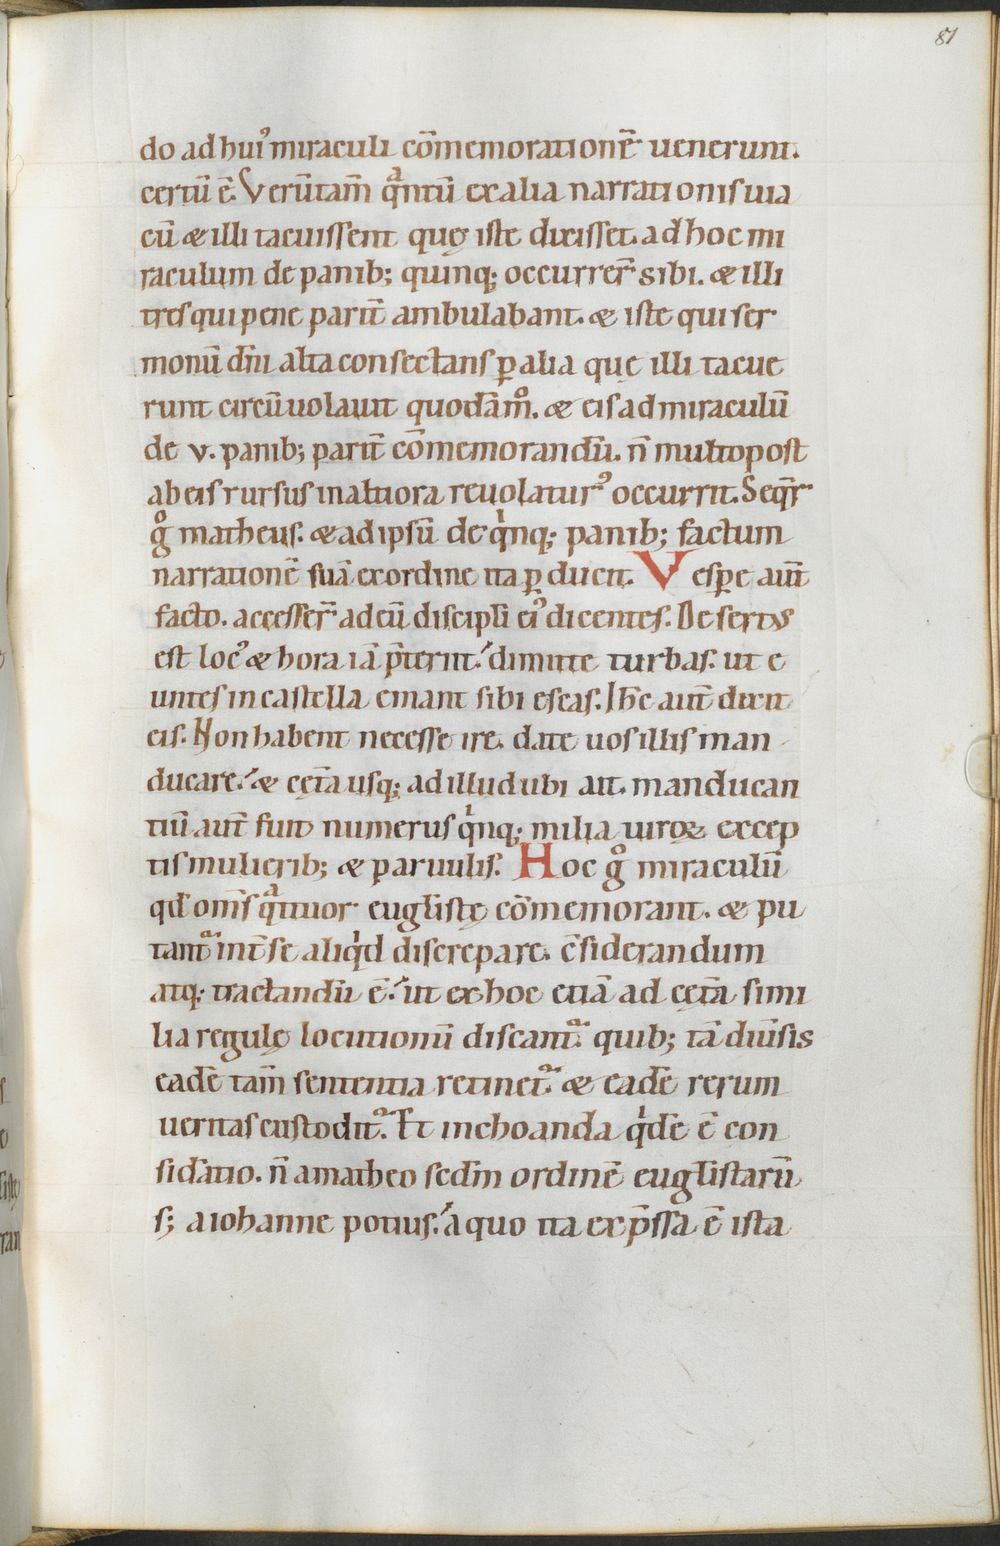 81
do ad hui᾿ miraculi cōmemorationē uenerunt.
certū ē. Verūtam̄ qͣntū ex alia narrationis uia
cū & illi tacuissent quę iste dixisset. ad hoc mi
raculum de panib; quinq; occurrer̄ sibi. & illi
tres qui pene parit̄ ambulabant. & iste qui ser
monū dn̄i alta consectans ꝑ alia quę illi tacue
runt circūuolauit quodāmͦ. & eis ad miraculū
de v. panib; parit̄ cōmemorandū. n̄ multo post
ab eis rursus in altiora reuolatur᾿ occurrit. Seqͥr
gͦ matheus. & ad ipsū de qͥnq; panib; factum
narrationē suā ex ordine ita ꝑducit. Vespe aut̄
facto. accesser̄ ad eū discipli ei᾿ dicentes. Desertus
est loc᾿ & hora iā p̄terit. dimitte turbas. ut e
untes in castella emant sibi escas. Ihc̄ aut̄ dixit
eis. Non habent necesse ire. date uos illis man
ducare. & cęt̄a usq; ad illud ubi ait. manducan
tiū aut̄ fuit numerus qͥnq; milia uiroꝝ excep
tis mulierib; & paruulis. Hoc gͦ miraculū
qd̄ om̄s qͣttuor eugl̄istę cōmemorant. & pu
tantᷣ int̄ se aliqͥd discrepare. c̄siderandum
atq; tractandū ē. ut ex hoc etiā ad cęt̄a simi
lia regulę locutionū discantᷣ. quib; tā diūsis
eadē tam̄ sententia retinetᷣ. & eadē rerum
ueritas custoditᷣ. Et inchoanda qͥdē ē con
sid̄atio. n̄ a matheo scdm̄ ordinē eugl̄istarū
s; a iohanne potius. a quo ita exp̄ssa ē ista